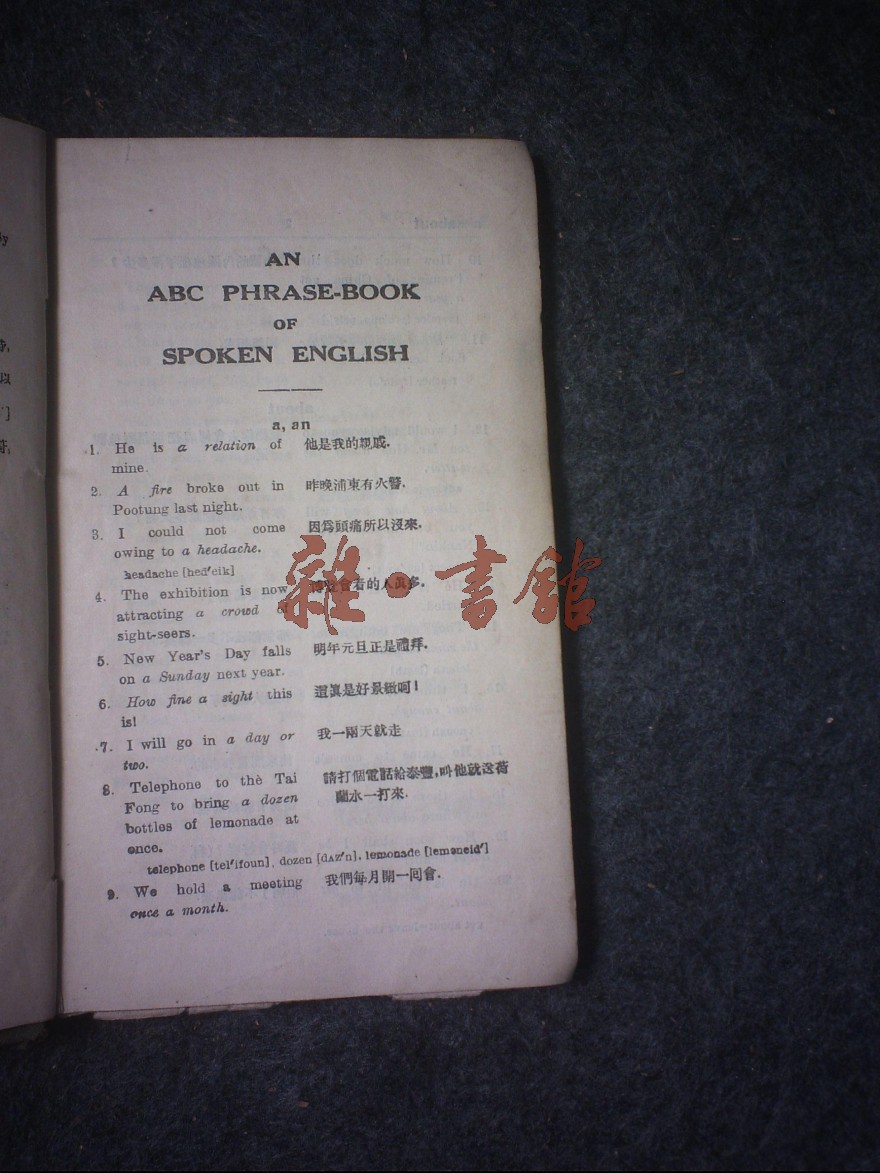 AN
ABC PHRASE-BOOK
OF
SPOKEN ENGLISH
a, an
1. He is a relation of
mine.
他是我的親戚.
2. A fire broke out in
Pootung last night.
昨晚浦東有火警.
3. I could not come
owing to a headache.
因爲頭痛所以沒來.
headache [hed′eik]
4. The exhibition is now
attracting a crowd of
sight-seers.
博覽會看的人眞多.
5. New Year's Day falls
on a Sunday next year.
明年元旦正是禮拜.
6. How fine a sight this
is!
這眞是好景緻呵!
7. I will go in a day or
two.
我一兩天就走
8. Telephone to the Tai
Fong to bring a dozen
bottles of lemonade at
once.
請打個電話給泰豐,叫他就送荷
蘭水一打來.
telephone [tel′ifoun], dozen [dʌz′n], lemonade [lemәneid′]
9. We hold a meeting
once a month.
我們每月開一回會.
雜·書館